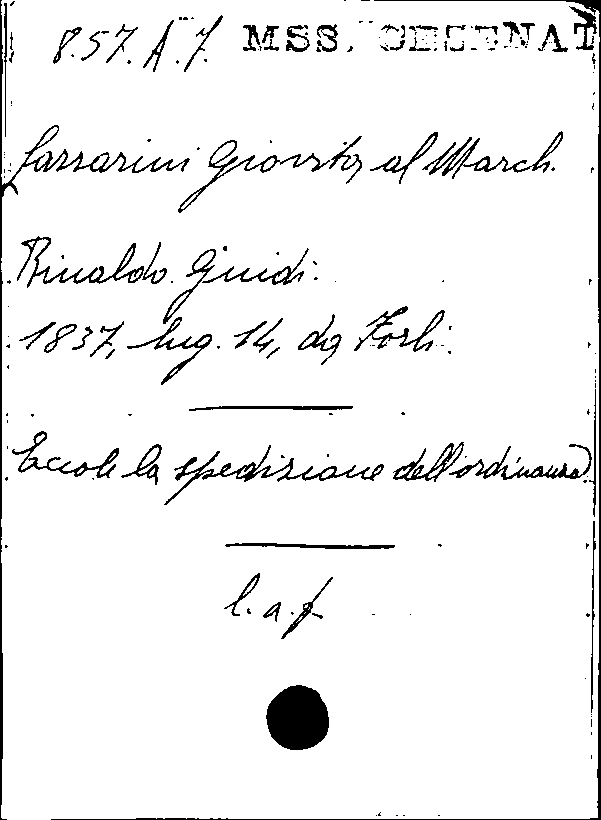 8.57.A.7. MSS. CESENAT
Lazzarini Giovita al March.
Rinaldo Guidi.
1837, lug. 14, da Forlì.
Eccole la spedizione dell'ordinanza
l.a.f.